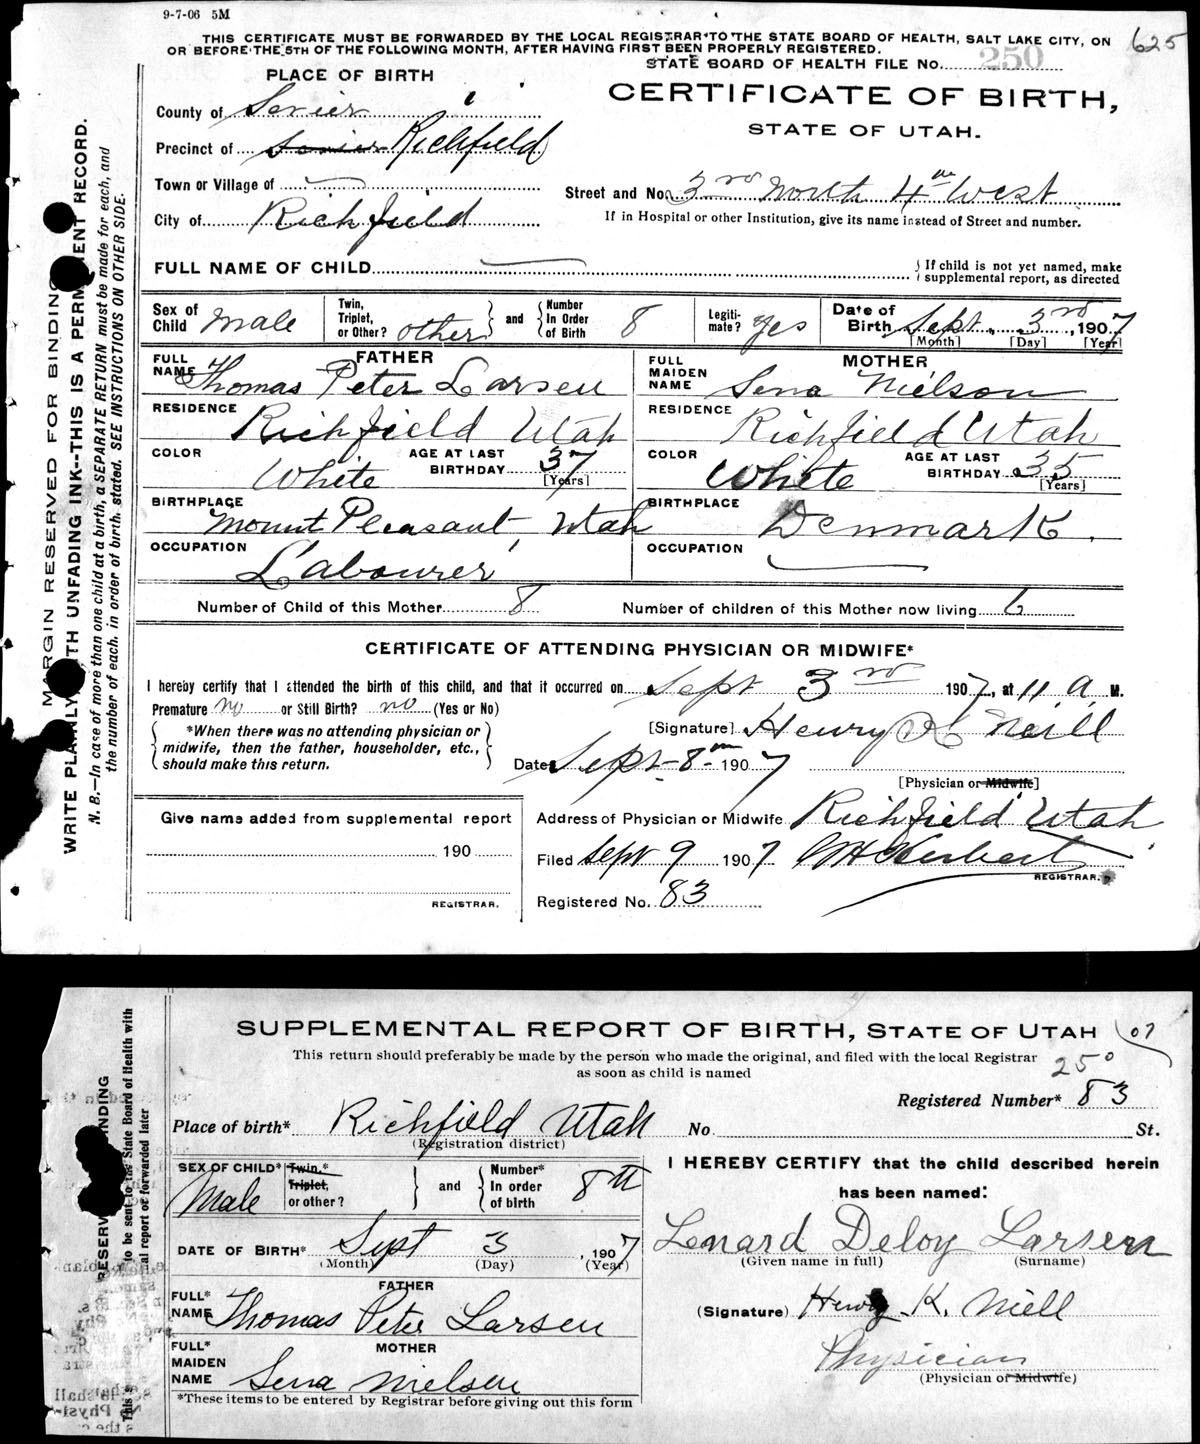 9-7-06 5M
THIS CERTIFICATE MUST BE FORWARDED BY THE LOCAL REGISTRAR TO THE STATE BOARD OF HEALTH, SALT LAKE CITY, ON
OR BEFORE THE 5TH OF THE FOLLOWING MONTH, AFTER HAVING FIRST BEEN PROPERLY REGISTERED.
625
STATE BOARD OF HEALTH FILE No. 250
PLACE OF BIRTH
CERTIFICATE OF BIRTH,
STATE OF UTAH.
County of Sevier
Precinct of Sevier Richfield
Town or Village of
City of Richfield
Street and No. 3rd North 4th West
If in Hospital or other Institution, give its name instead of Street and number.
FULL NAME OF CHILD
If child is not yet named, make
supplemental report, as directed
Sex of Child Male
Twin, Triplet, or Other? other
and
Number In Order of Birth 8
Legiti-mate? yes
Date of Birth Sept. 3rd, 1907
[Month] [Day] [Year]
FATHER
FULL NAME Thomas Peter Larsen
RESIDENCE Richfield Utah
COLOR White
AGE AT LAST BIRTHDAY 37
[Years]
BIRTHPLACE Mount Pleasant, Utah
OCCUPATION Labourer
MOTHER
FULL MAIDEN NAME Sena Nielson
RESIDENCE Richfield Utah
COLOR White
AGE AT LAST BIRTHDAY 35
[Years]
BIRTHPLACE Denmark.
OCCUPATION
Number of Child of this Mother 8
Number of children of this Mother now living 6
CERTIFICATE OF ATTENDING PHYSICIAN OR MIDWIFE*
I hereby certify that I attended the birth of this child, and that it occurred on Sept 3rd 1907, at 11 a M.
Premature no or Still Birth? no (Yes or No)
*When there was no attending physician or
midwife, then the father, householder, etc.,
should make this return.
[Signature] Henry K Neill
Date Sept-8th-1907
[Physician or Midwife]
Give name added from supplemental report
190
REGISTRAR.
Address of Physician or Midwife Richfield Utah
Filed Sept 9 1907 Herbert
REGISTRAR.
Registered No. 83
MARGIN RESERVED FOR BINDING
WRITE PLAINLY WITH UNFADING INK--THIS IS A PERMANENT RECORD.
N. B.—In case of more than one child at a birth, a SEPARATE RETURN must be made for each, and
the number of each, in order of birth, stated. SEE INSTRUCTIONS ON OTHER SIDE.
SUPPLEMENTAL REPORT OF BIRTH, STATE OF UTAH
07
This return should preferably be made by the person who made the original, and filed with the local Registrar
as soon as child is named
250
Registered Number* 83
Place of birth* Richfield Utah No. St.
(Registration district)
SEX OF CHILD* Male
Twin,* Triplet, or other?
and
Number* In order of birth 8th
DATE OF BIRTH* Sept 3, 1907
(Month) (Day) (Year)
FATHER
FULL* NAME Thomas Peter Larsen
MOTHER
FULL* MAIDEN NAME Sena Nielsen
*These items to be entered by Registrar before giving out this form
I HEREBY CERTIFY that the child described herein
has been named:
Lenard Deloy Larsen
(Given name in full) (Surname)
(Signature) Henry K. Niell
Physician
(Physician or Midwife)